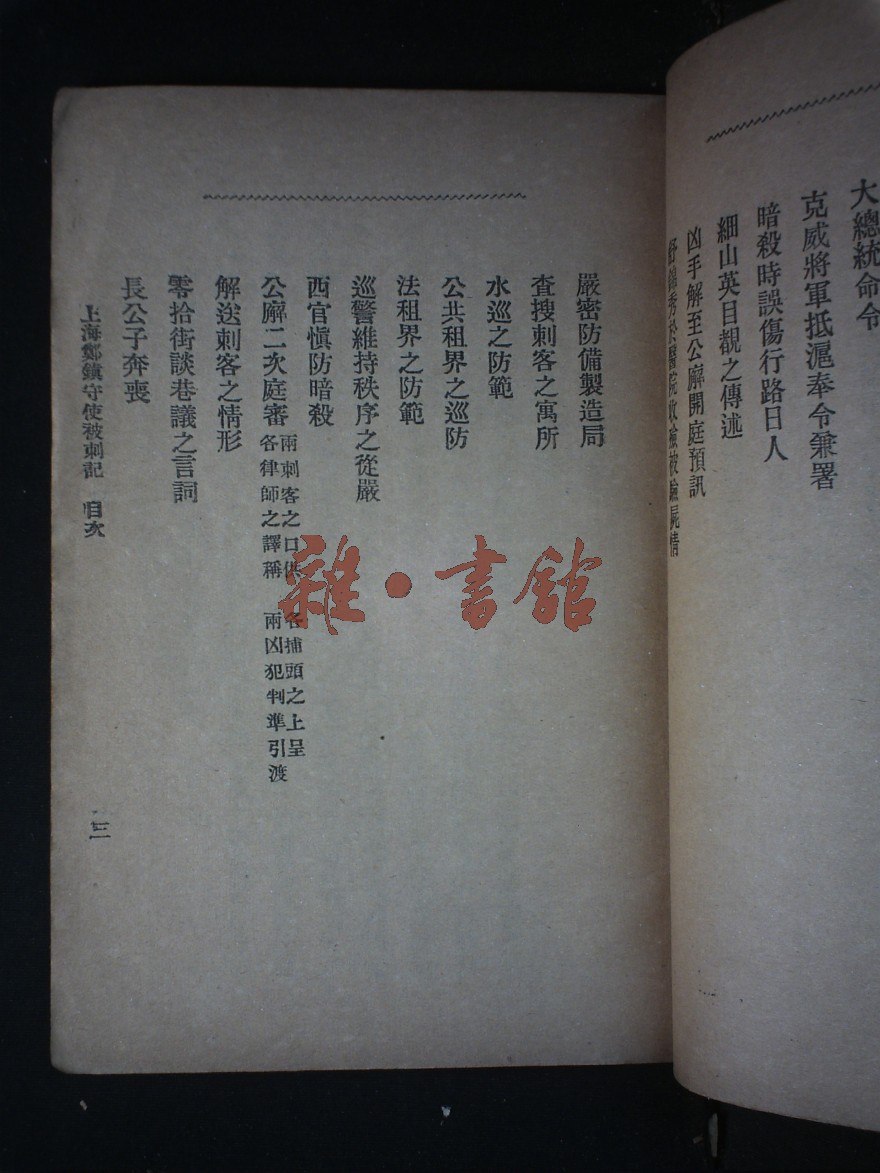 大總統命令
克威將軍抵滬奉令兼署
暗殺時誤傷行路日人
細山英目覩之傳述
凶手解至公廨開庭預訊
舒錦秀於醫院收殮被驗屍情
嚴密防備製造局
查搜刺客之寓所
水巡之防範
公共租界之巡防
法租界之防範
巡警維持秩序之從嚴
西官慎防暗殺
公廨二次庭審 兩刺客之口供 各捕頭之上呈
各律師之譯稱 兩凶犯判準引渡
解送刺客之情形
零拾街談巷議之言詞
長公子奔喪
上海鄭鎮守使被刺記 目次
三
雜·書館